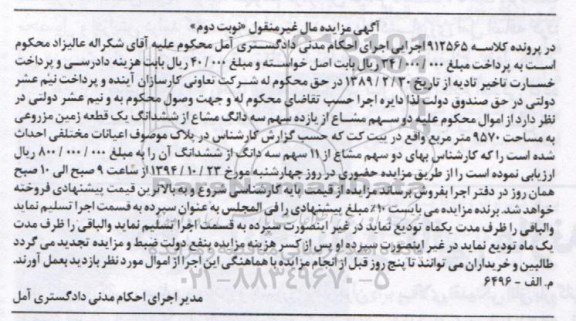 آگهی مزایده مال غیرمنقول «نوبت دوم»
در پرونده کلاسه ۹۱۲۵۶۵ اجرایی اجرای احکام مدنی دادگستری آمل محکوم علیه آقای شکراله عالیزاد محکوم
است به پرداخت مبلغ ۳۴/۰۰۰/۰۰۰ ریال بابت اصل خواسته و مبلغ ۴۰/۰۰۰ ریال بابت هزینه دادرسی و پرداخت
خسارت تاخیر تادیه از تاریخ ۱۳۸۹/۲/۳۰ در حق محکوم له شرکت تعاونی کارسازان آینده و پرداخت نیم عشر
دولتی در حق صندوق دولت لذا دایره اجرا حسب تقاضای محکوم له و جهت وصول محکوم به و نیم عشر دولتی در
نظر دارد از اموال محکوم علیه دو سهم مشاع از یازده سهم سه دانگ مشاع از ششدانگ یک قطعه زمین مزروعی
به مساحت ۹۵۷۰ متر مربع واقع در بیت کت که حسب گزارش کارشناس در پلاک موصوف اعیانات مختلفی احداث
شده است را که کارشناس بهای دو سهم مشاع از ۱۱ سهم سه دانگ از ششدانگ آن را به مبلغ ۸۰۰/۰۰۰/۰۰۰ ریال
ارزیابی نموده است را از طریق مزایده حضوری در روز چهارشنبه مورخ ۱۳۹۴/۱۰/۲۳ از ساعت ۹ صبح الی ۱۰ صبح
همان روز در دفتر اجرا بفروش برساند. مزایده از قیمت پایه کارشناسی شروع و به بالاترین قیمت پیشنهادی فروخته
خواهد شد. برنده مزایده می بایست ۱۰٪ مبلغ پیشنهادی را فی المجلس به عنوان سپرده به قسمت اجرا تسلیم نماید
والباقی را ظرف مدت یکماه تودیع نماید در غیر اینصورت سپرده به قسمت اجرا تسلیم نماید والباقی را ظرف مدت
یک ماه تودیع نماید در غیر اینصورت سپرده او پس از کسر هزینه مزایده بنفع دولت ضبط و مزایده تجدید می گردد
طالبین و خریداران می توانند تا پنج روز قبل از انجام مزایده با هماهنگی این اجرا از اموال مورد نظر بازدید بعمل آورند.
م. الف - ۶۴۹۶
مدیر اجرای احکام مدنی دادگستری آمل
۰۲۱-۸۸۳۴۹۶۷۰-۵